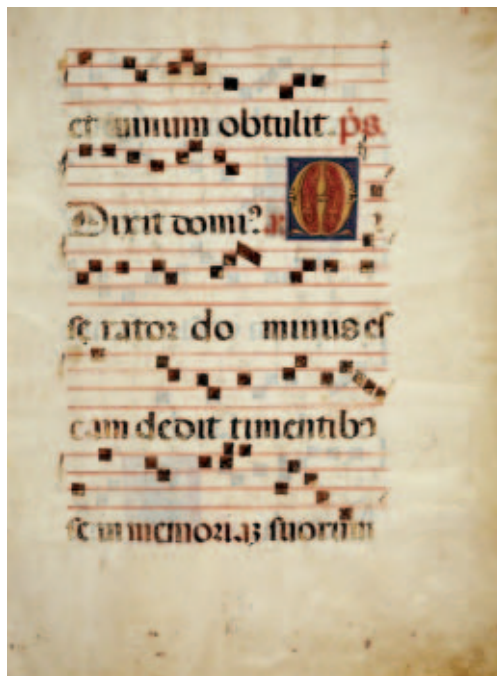 et uinum obtulit. ps.
Dixit domi? a M i
se rator do minus es
cam dedit timentibꝰ
se in memoriaȝ suorum